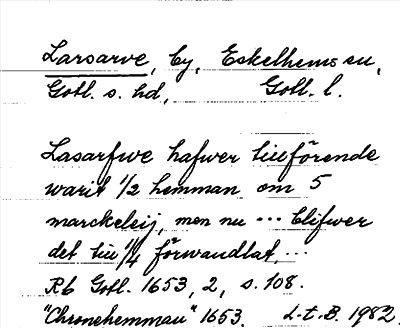 Larsarve, by, Eskelhems sn,
Gotl. s. hd, Gotl. l.
Lasarfwe hafwer tillförende
warit 1/2 hemman om 5
marckeleij, men nu ... blifwer
det till 1/4 förwandlat, ...
Rb Gotl. 1653, 2, s. 108.
"Chronehemman" 1653. L-t. B. 1982